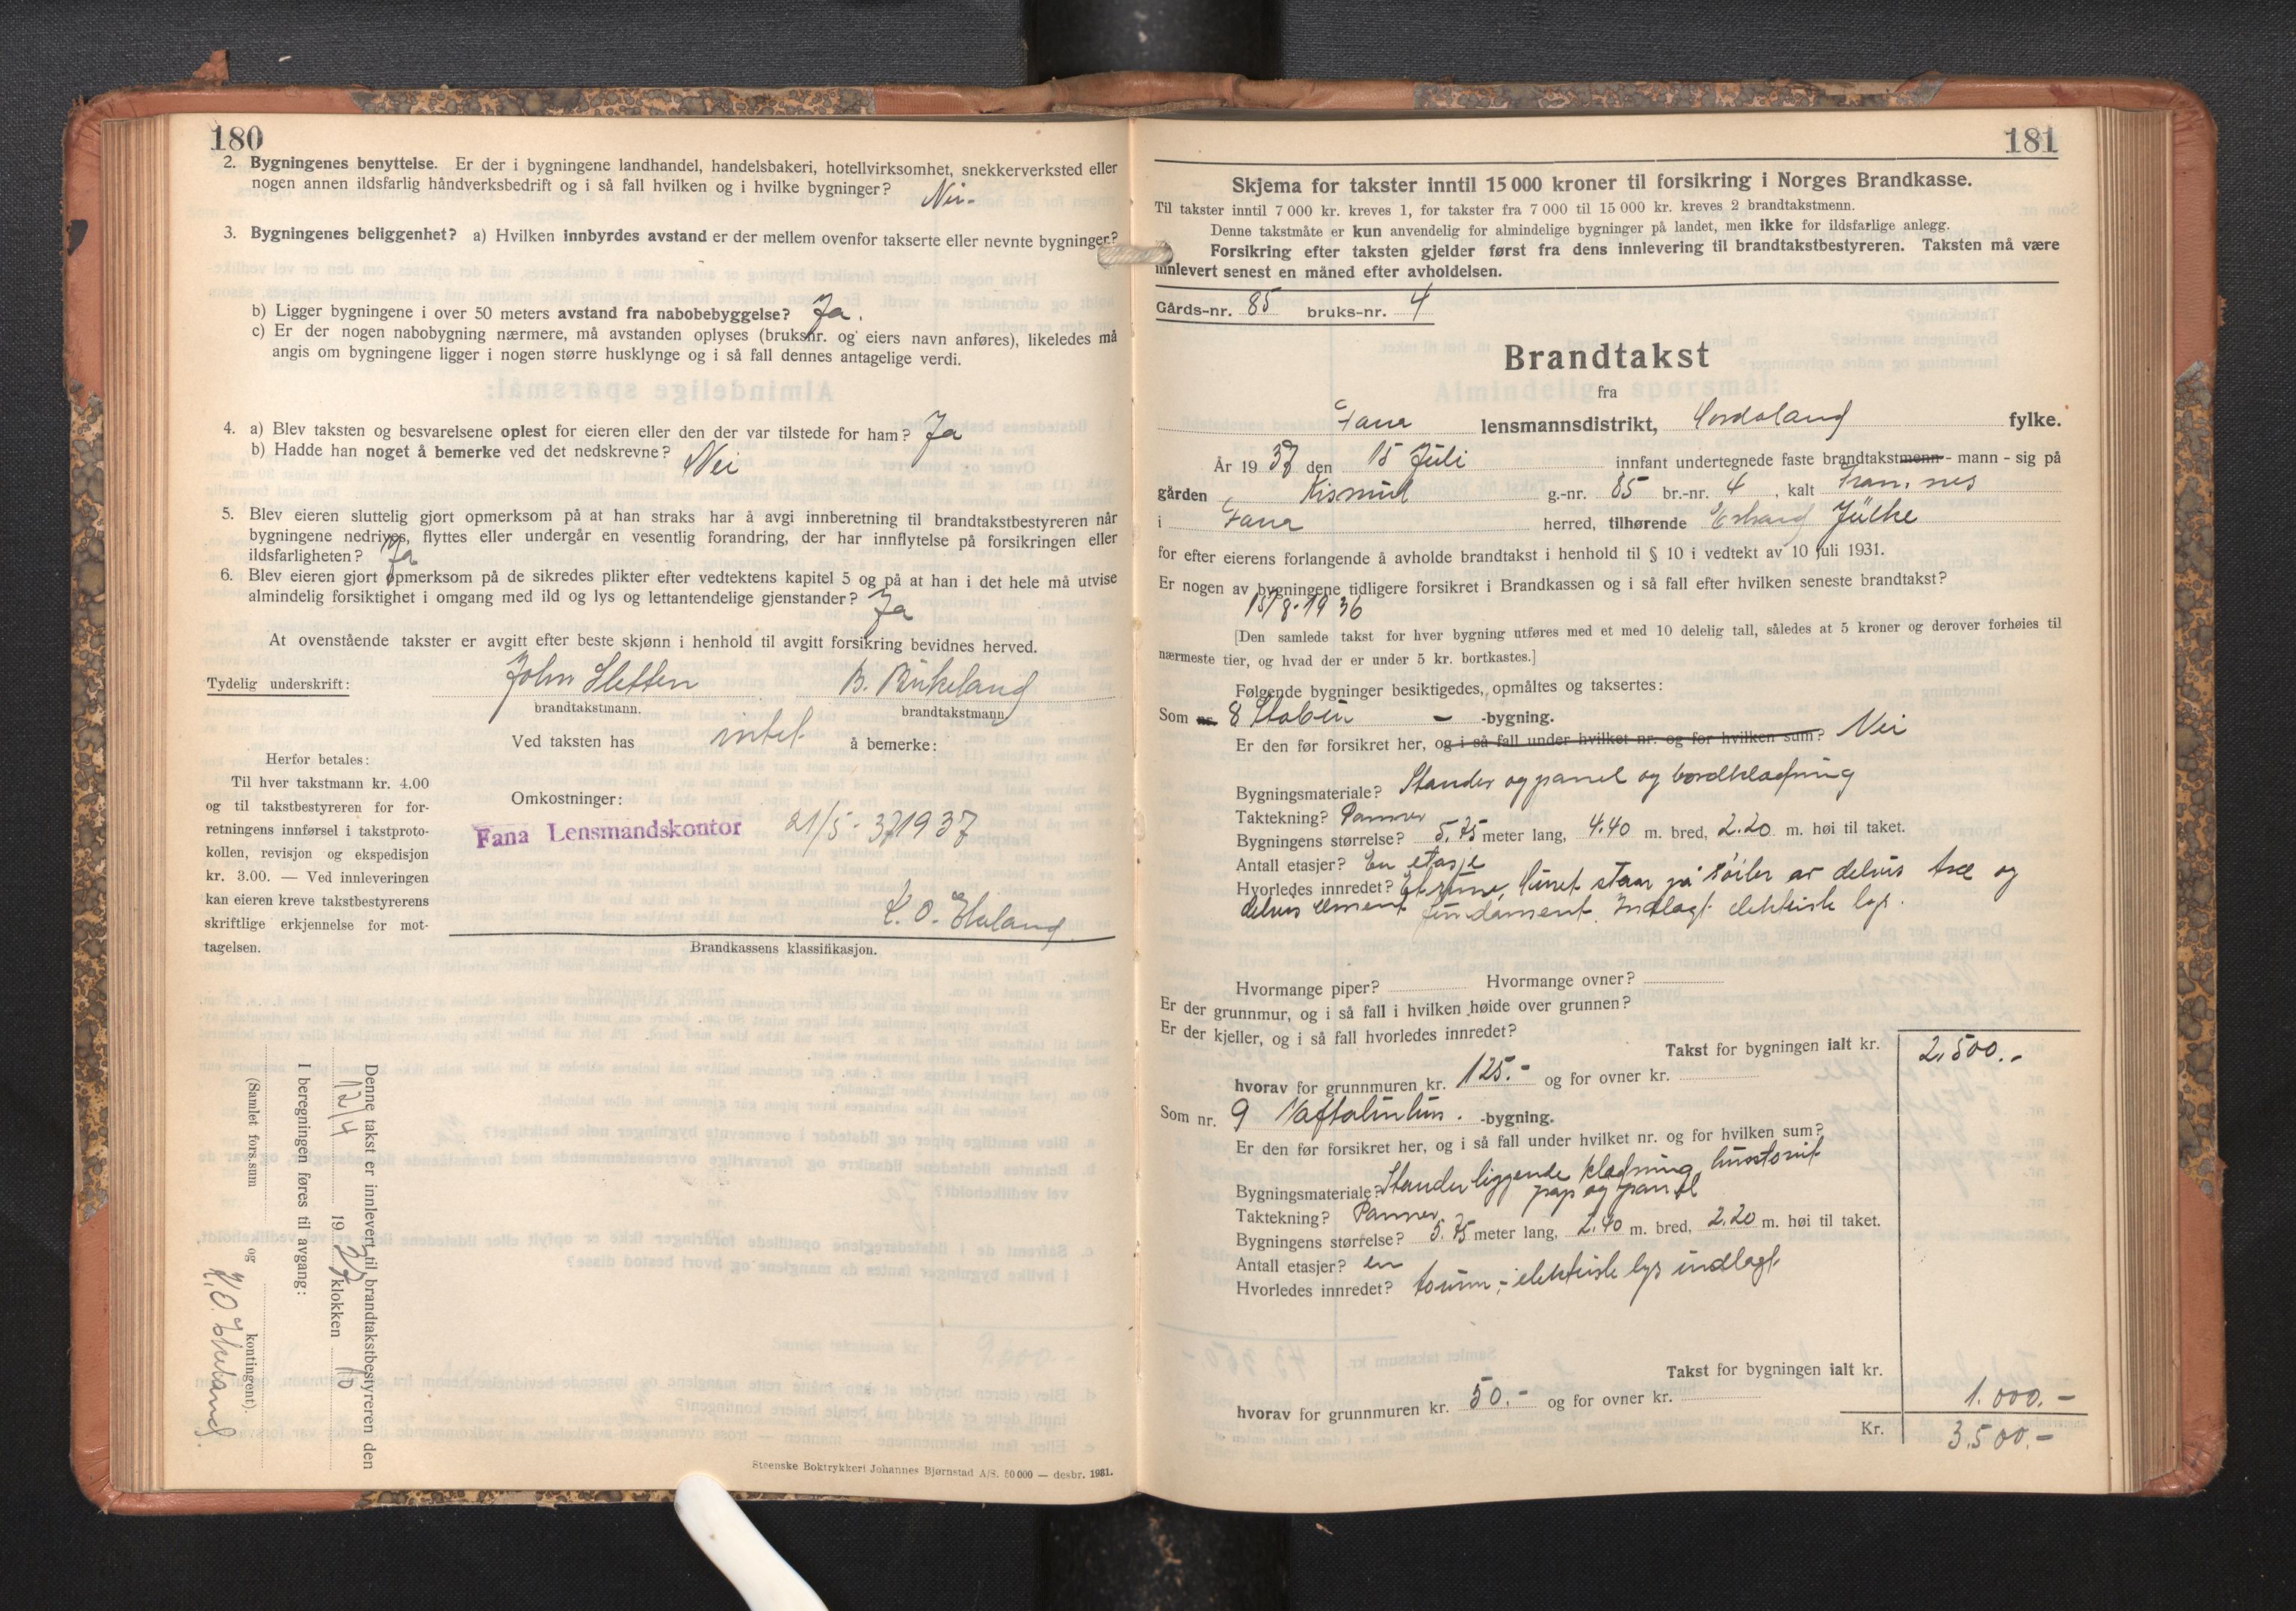 180
2. Bygningenes benyttelse. Er der i bygningene landhandel, handelsbakeri, hotellvirksomhet, snekkerverksted eller
nogen annen ildsfarlig håndverksbedrift og i så fall hvilken og i hvilke bygninger? Nei.
3. Bygningenes beliggenhet? a) Hvilken innbyrdes avstand er der mellem ovenfor takserte eller nevnte bygninger?
b) Ligger bygningene i over 50 meters avstand fra nabobebyggelse? Ja.
c) Er der nogen nabobygning nærmere, må avstanden oplyses (bruksnr. og eiers navn anføres), likeledes må
angis om bygningene ligger i nogen større husklynge og i så fall dennes antagelige verdi.
4. a) Blev taksten og besvarelsene oplest for eieren eller den der var tilstede for ham? Ja
b) Hadde han noget å bemerke ved det nedskrevne? Nei
5. Blev eieren sluttelig gjort opmerksom på at han straks har å avgi innberetning til brandtakstbestyreren når
bygningene nedrives, flyttes eller undergår en vesentlig forandring, der har innflytelse på forsikringen eller
ildsfarligheten? Ja
6. Blev eieren gjort opmerksom på de sikredes plikter efter vedtektens kapitel 5 og på at han i det hele må utvise
almindelig forsiktighet i omgang med ild og lys og lettantendelige gjenstander? Ja
At ovenstående takster er avgitt efter beste skjønn i henhold til avgitt forsikring bevidnes herved.
Tydelig underskrift: John Sletten B. Birkeland
brandtakstmann. brandtakstmann
Ved taksten has intet å bemerke:
Herfor betales:
Til hver takstmann kr. 4.00
og til takstbestyreren for for-
retningens innførsel i takstproto-
kollen, revisjon og ekspedisjon
kr. 3.00. — Ved innleveringen
kan eieren kreve takstbestyrerens
skriftlige erkjennelse for mot-
tagelsen.
Omkostninger:
Fana Lensmandskontor 21/5-37 1937
Brandkassens klassifikasjon.
Denne takst er innlevert til brandtakstbestyreren den
12/4 19 37 klokken 10
I beregningen føres til avgang:
(Samlet fors.sum og kontingent).
Steenske Boktrykkeri Johannes Bjørnstad A/S. 50 000 — desbr. 1931.
181
Skjema for takster inntil 15 000 kroner til forsikring i Norges Brandkasse.
Til takster inntil 7 000 kr. kreves 1, for takster fra 7 000 til 15 000 kr. kreves 2 brandtakstmenn.
Denne takstmåte er kun anvendelig for almindelige bygninger på landet, men ikke for ildsfarlige anlegg.
Forsikring efter taksten gjelder først fra dens innlevering til brandtakstbestyreren. Taksten må være
innlevert senest en måned efter avholdelsen.
Gårds-nr. 85 bruks-nr. 4
Brandtakst
fra
Fana lensmannsdistrikt, Hordaland fylke.
År 19 37 den 15 Juli innfant undertegnede faste brandtakstmenn - mann - sig på
gården g.-nr. 85 br.-nr. 4, kalt
i Fana herred, tilhørende Erhard Jülke
for efter eierens forlangende å avholde brandtakst i henhold til § 10 i vedtekt av 10 juli 1931.
Er nogen av bygningene tidligere forsikret i Brandkassen og i så fall efter hvilken seneste brandtakst?
15/8-1936
[Den samlede takst for hver bygning utføres med et med 10 delelig tall, således at 5 kroner og derover forhøies til
nærmeste tier, og hvad der er under 5 kr. bortkastes.]
Følgende bygninger besiktigedes, opmåltes og taksertes:
Som nr. 8 - -bygning.
Er den før forsikret her, og i så fall under hvilket nr. og for hvilken sum? Nei
Bygningsmateriale? Stander og panel og bordklædning
Taktekning? Panner
Bygningens størrelse? 5.75 meter lang, 4.40 m. bred, 2.20 m. høi til taket.
Antall etasjer? En etasje
Hvorledes innredet? Et rum, Huset staar på søiler av delvis træ og
delvis sement fundament. Indlagt elektrisk lys.
Hvormange piper? Hvormange ovner?
Er der grunnmur, og i så fall i hvilken høide over grunnen?
Er der kjeller, og i så fall hvorledes innredet?
Takst for bygningen ialt kr. 2.500.-
hvorav for grunnmuren kr. 125.- og for ovner kr.
Som nr. 9 -bygning.
Er den før forsikret her, og i så fall under hvilket nr. og for hvilken sum?
Bygningsmateriale? Stander liggende klædning,
pap og panel
Taktekning? Panner.
Bygningens størrelse? 5.75 meter lang, 2.40 m. bred, 2.20 m. høi til taket.
Antall etasjer? en
Hvorledes innredet? elektrisk lys indlagt
Takst for bygningen ialt kr. 1.000.-
hvorav for grunnmuren kr. 50.- og for ovner kr.
Kr. 3.500.-